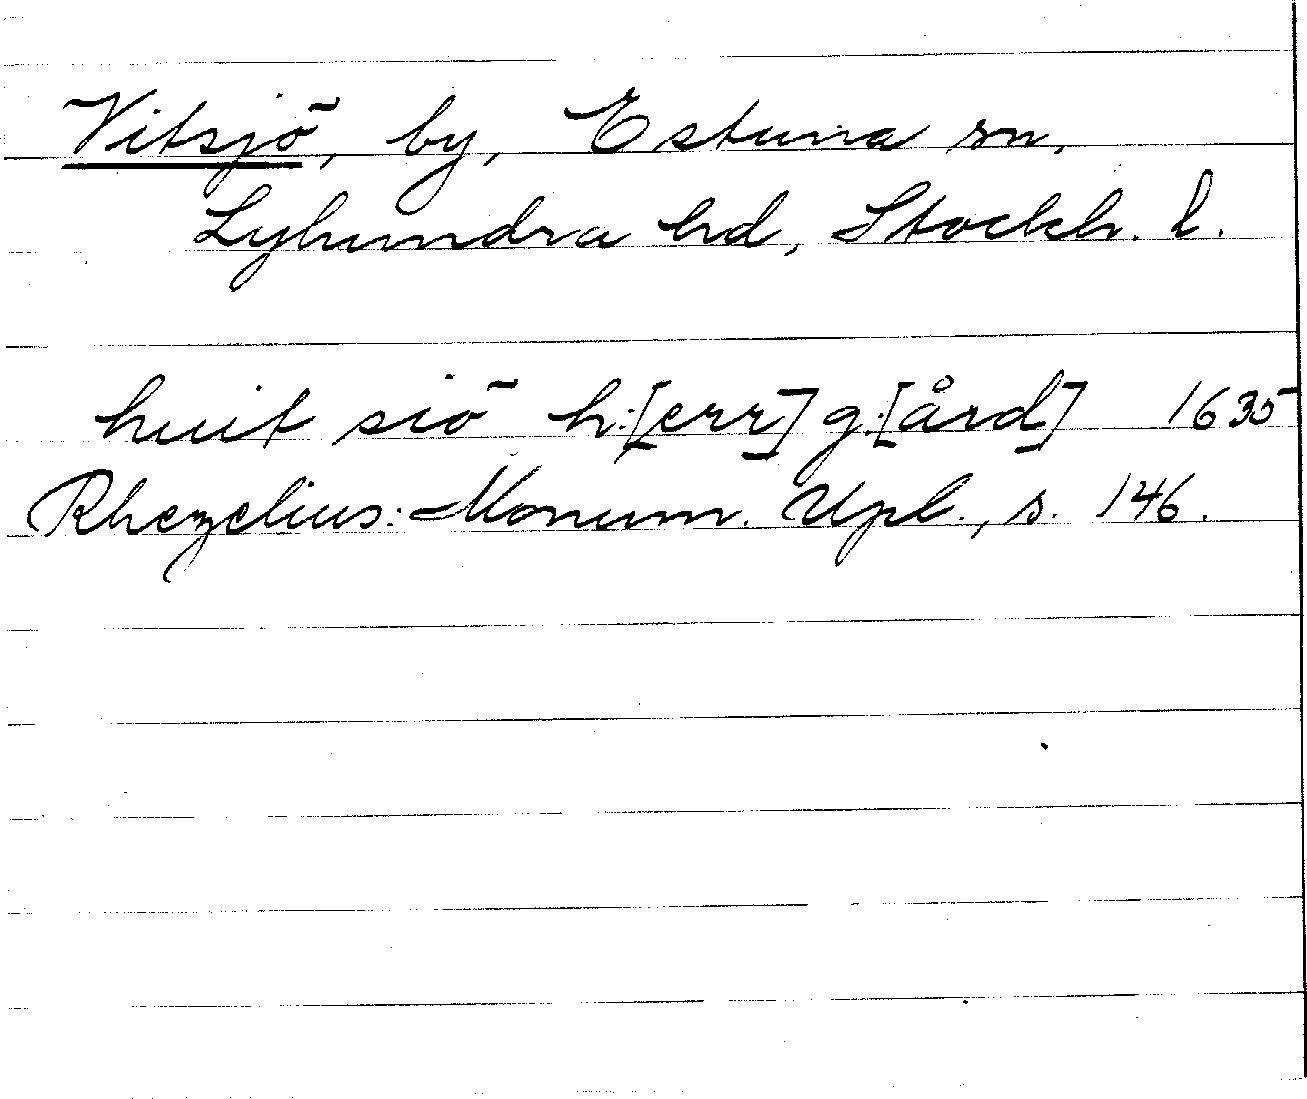 Vitsjö, by, Estuna sn,
Lyhundra hd, Stockh. l.
huit siö h:[err] g:[ård] 1635
Rhezelius: Monum. Upl., s. 146.